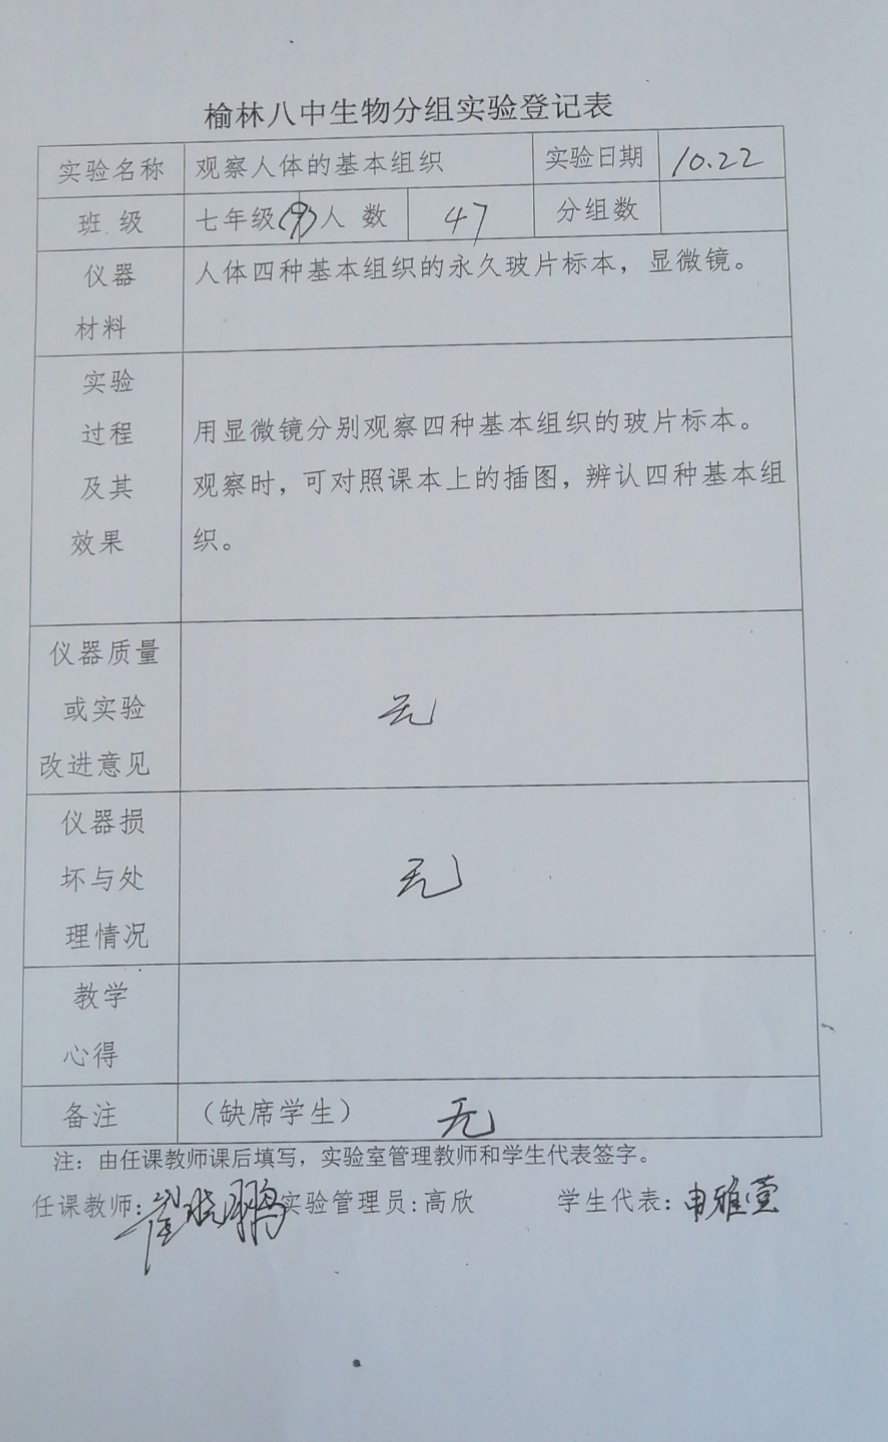 榆林八中生物分组实验登记表
实验名称 观察人体的基本组织 实验日期 10.22
班.级 七年级(9) 人 数 47 分组数
仪器 人体四种基本组织的永久玻片标本，显微镜。
材料
实验
过程 用显微镜分别观察四种基本组织的玻片标本。
及其 观察时，可对照课本上的插图，辨认四种基本组
效果 织。
仪器质量
或实验 无
改进意见
仪器损
坏与处 无
理情况
教学
心得
备注 （缺席学生） 无
注：由任课教师课后填写，实验室管理教师和学生代表签字。
任课教师：崔晓鹏 实验管理员：高欣 学生代表：申雅萱